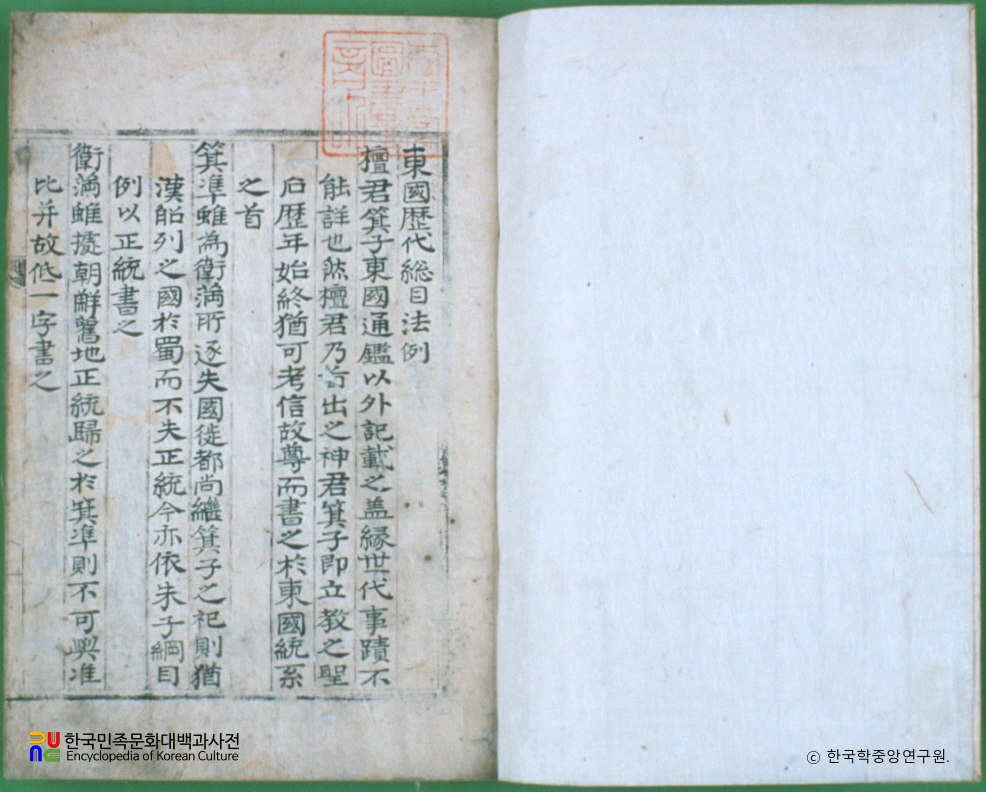 東國歷代総目法例
檀君箕子東國通鑑以外記載之盖縁世代事蹟不
能詳也然檀君乃首出之神君箕子即立教之聖
后歷年始終猶可考信故尊而書之於東國統系
之首
箕準雖為衛滿所逐失國徙都尚繼箕子之祀則猶
漢昭列之國於蜀而不失正統今亦依朱子綱目
例以正統書之
衛滿雖據朝鮮舊地正統歸之於箕準則不可與準
比并故低一字書之
한국민족문화대백과사전
Encyclopedia of Korean Culture
© 한국학중앙연구원.